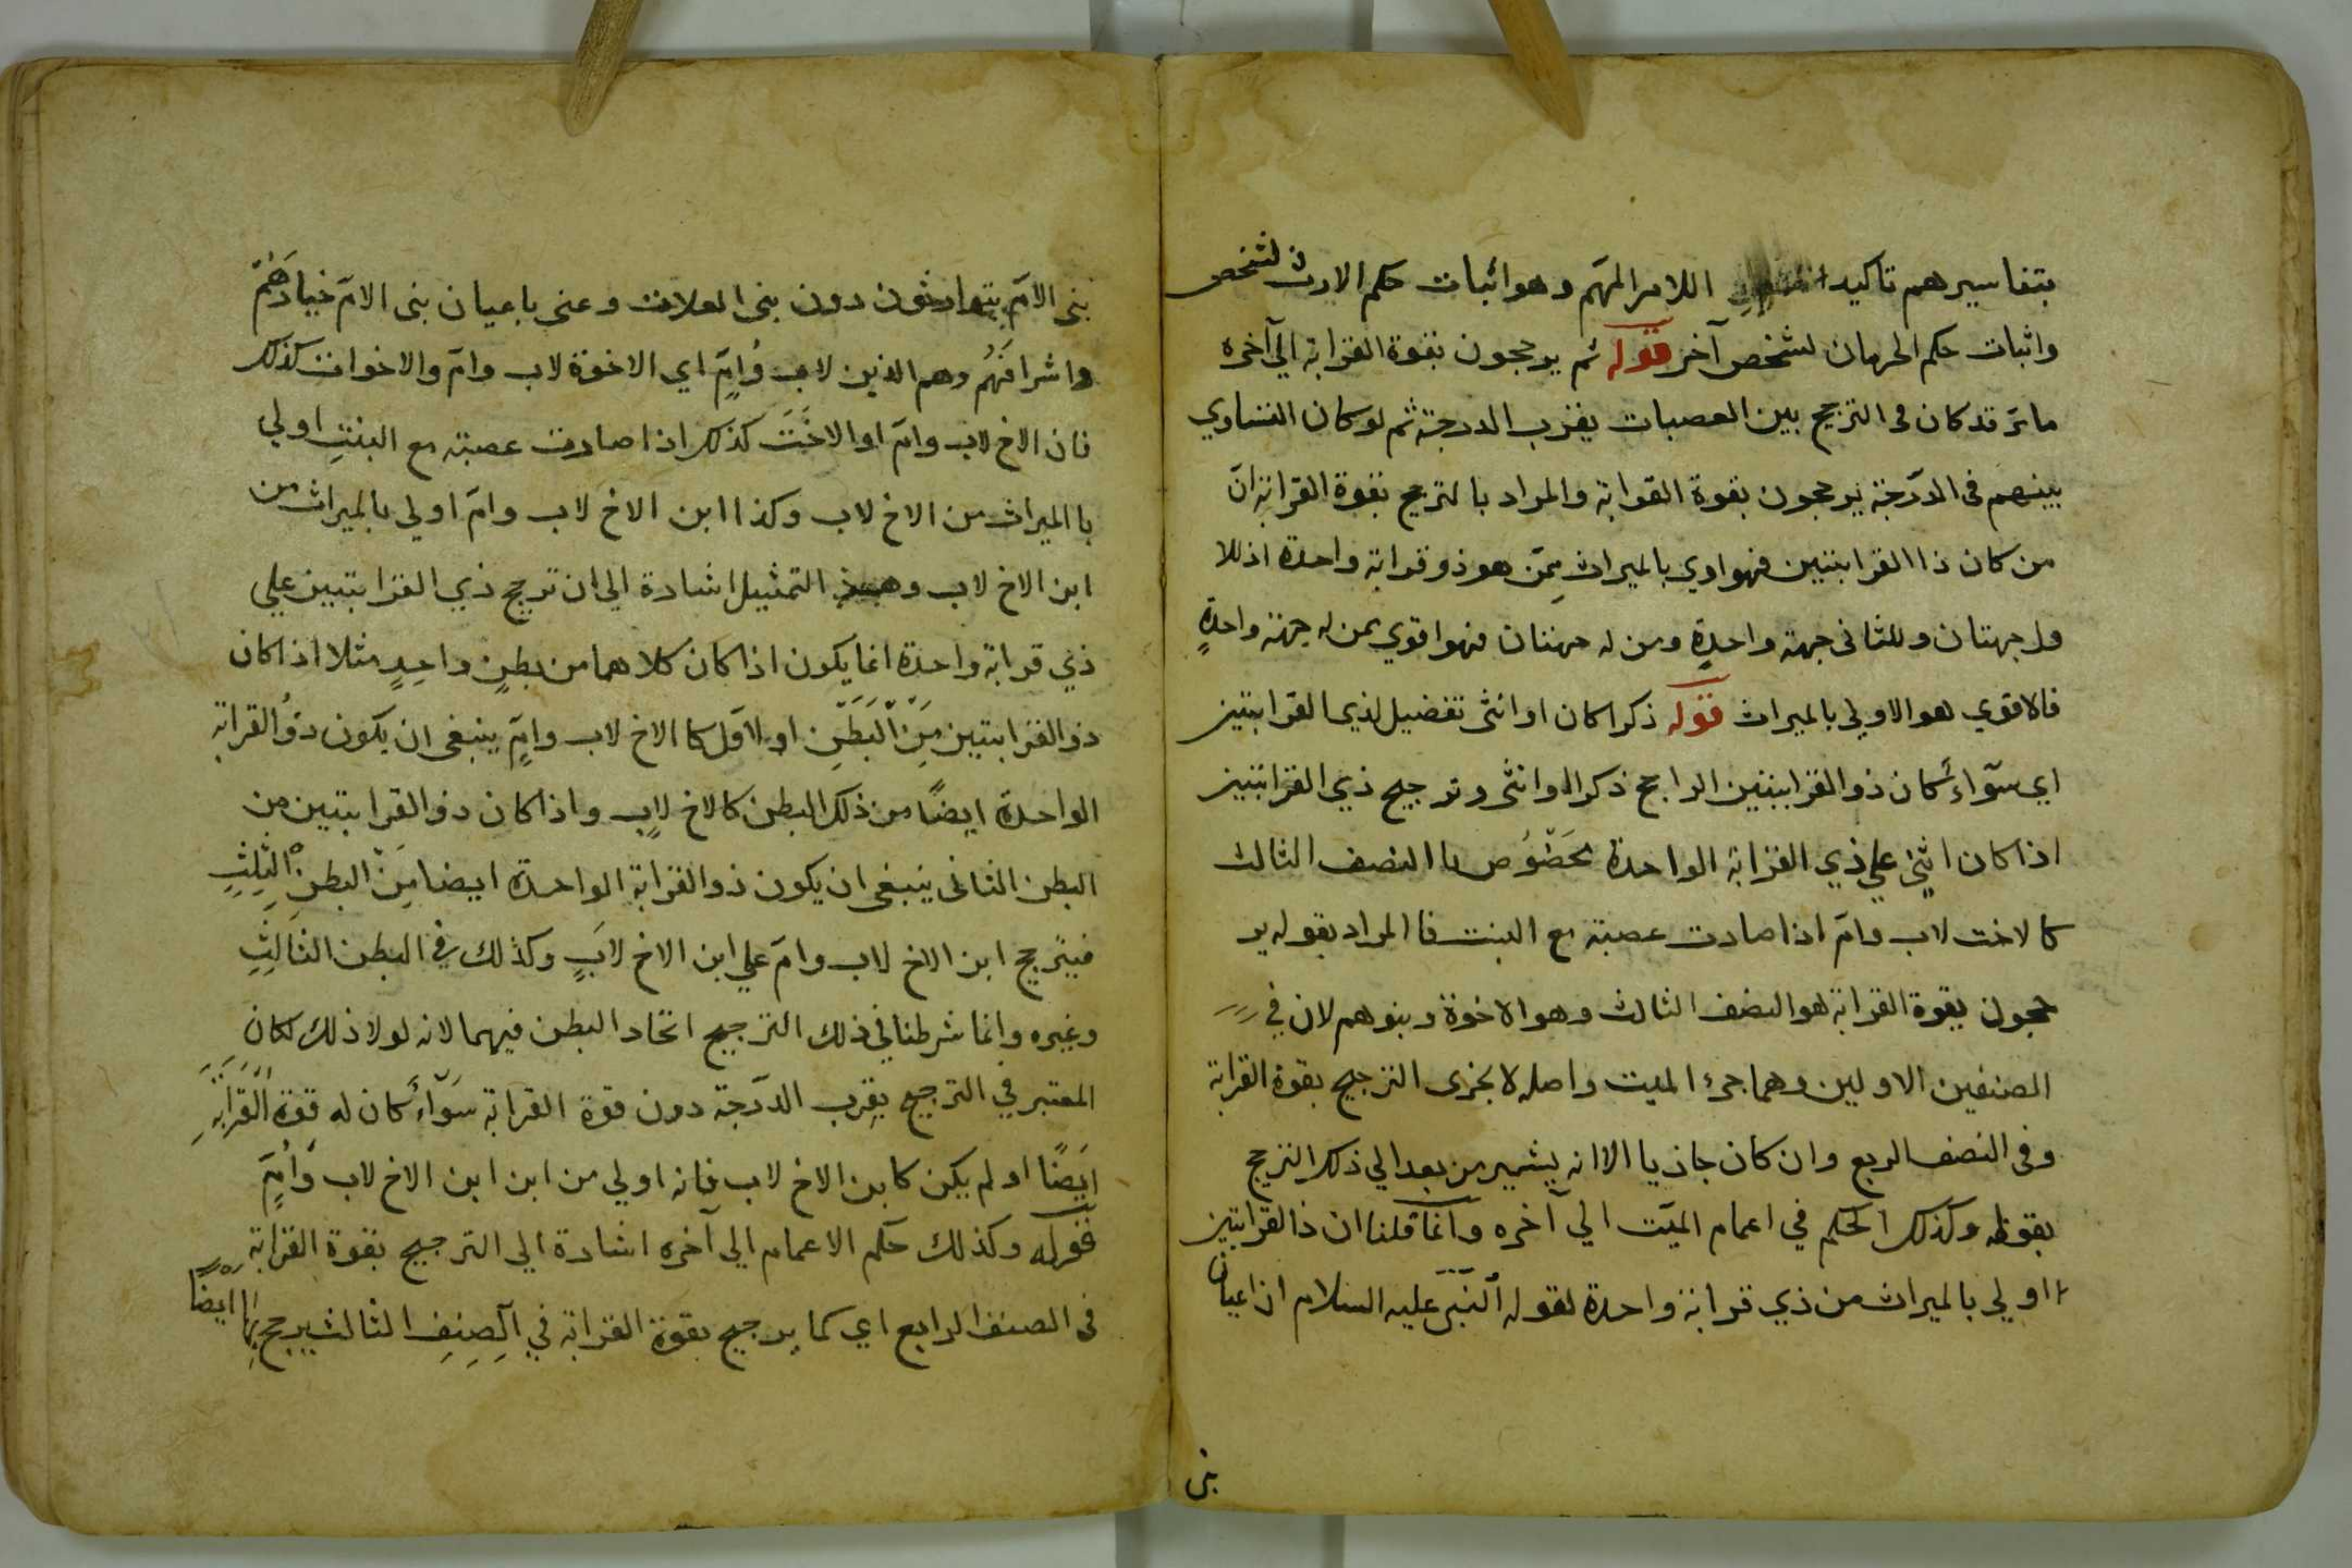 بتفاسيرهم تاكيدا اللامر المهم وهو اثبات حكم الارث لشخص
واثبات حكم الحرمان لشخص آخر قوله ثم يرجحون بقوة القرابة الى آخره
مامر قد كان فى الترجيح بين العصبات بقرب الدرجة ثم لو كان التساوي
بينهم فى الدرجة يرجحون بقوة القوابة والمراد بالترجيح بقوة القرابة ان
من كان ذا القرابتين فهو اولي بالميراث ممن هو ذو قرابة واحدة اذ للا
ول جهتان وللثانى جهة واحدة ومن له جهتان فهو اقوي ممن له جهة واحدة
فالاقوي هو الاولي بالميراث قوله ذكرا كان او انثى تفضيل لذي القرابتين
اي سوآء كان ذو القرابتين الراجح ذكرا او انثى وترجيح ذي القرابتين
اذا كان انثى علي ذي القرابة الواحدة مخصوص باالصنف الثالث
كالاخت لاب وام اذا صارت عصبة مع البنت فاالمراد بقوله ير
جحون بقوة القرابة هو الصنف الثالث وهو الاخوة وبنوهم لان في
الصنفين الاولين وهما جزء الميت واصله لا يجرى الترجيح بقوة القرابة
وفى الصنف الربع وان كان جاريا الا انه يشير من بعد الي ذلك الترجيح
بقوله وكذلك الحكم في اعمام الميت الي آخره وانما قلنا ان ذا القرابتين
اولي بالميراث من ذي قرابة واحدة لقوله النبى عليه السلام ان اعيان
بنى
بنى الام يتوارثون دون بنى العلات وعنى باعيان بنى الام خيارهم
واشرافهم وهم الذين لاب وام اي الاخوة لاب وام والاخوات كذلك
فان الاخ لاب وام او الاخت كذلك اذا صارت عصبة مع البنت اولي
باالميراث من الاخ لاب وكذا ابن الاخ لاب وام اولي بالميراث من
ابن الاخ لاب التمثيل اشارة الي ان ترجيح ذي القرابتين علي
ذي قرابة واحدة انما يكون اذا كان كلاهما من بطن واحد مثلا اذا كان
ذو القرابتين من البطن اولاول كا الاخ لاب وام ينبغى ان يكون ذو القرابة
الواحدة ايضا من ذلك البطن كالاخ لاب واذا كان ذو القرابتين من
البطن الثانى ينبغى ان يكون ذو القرابة الواحدة ايضا من البطن الثلث
فيترجح ابن الاخ لاب وام علي ابن الاخ لاب وكذلك في البطن الثالث
وغيره وانما شرطنا في ذلك الترجيح اتحاد البطن فيهما لانه لولا ذلك لكان
المعتبر في الترجيح بقرب الدرجة دون قوة القرابة سوآء كان له قوة القرابة
ايضا او لم يكن كابن الاخ لاب فانه اولي من ابن ابن الاخ لاب وام
قوله وكذلك حكم الاعمام الى آخره اشارة الي الترجيح بقوة القرابة
فى الصنف الرابع اي كما يرجح بقوة القرابة في الصنف الثالث يرجح بها ايضا